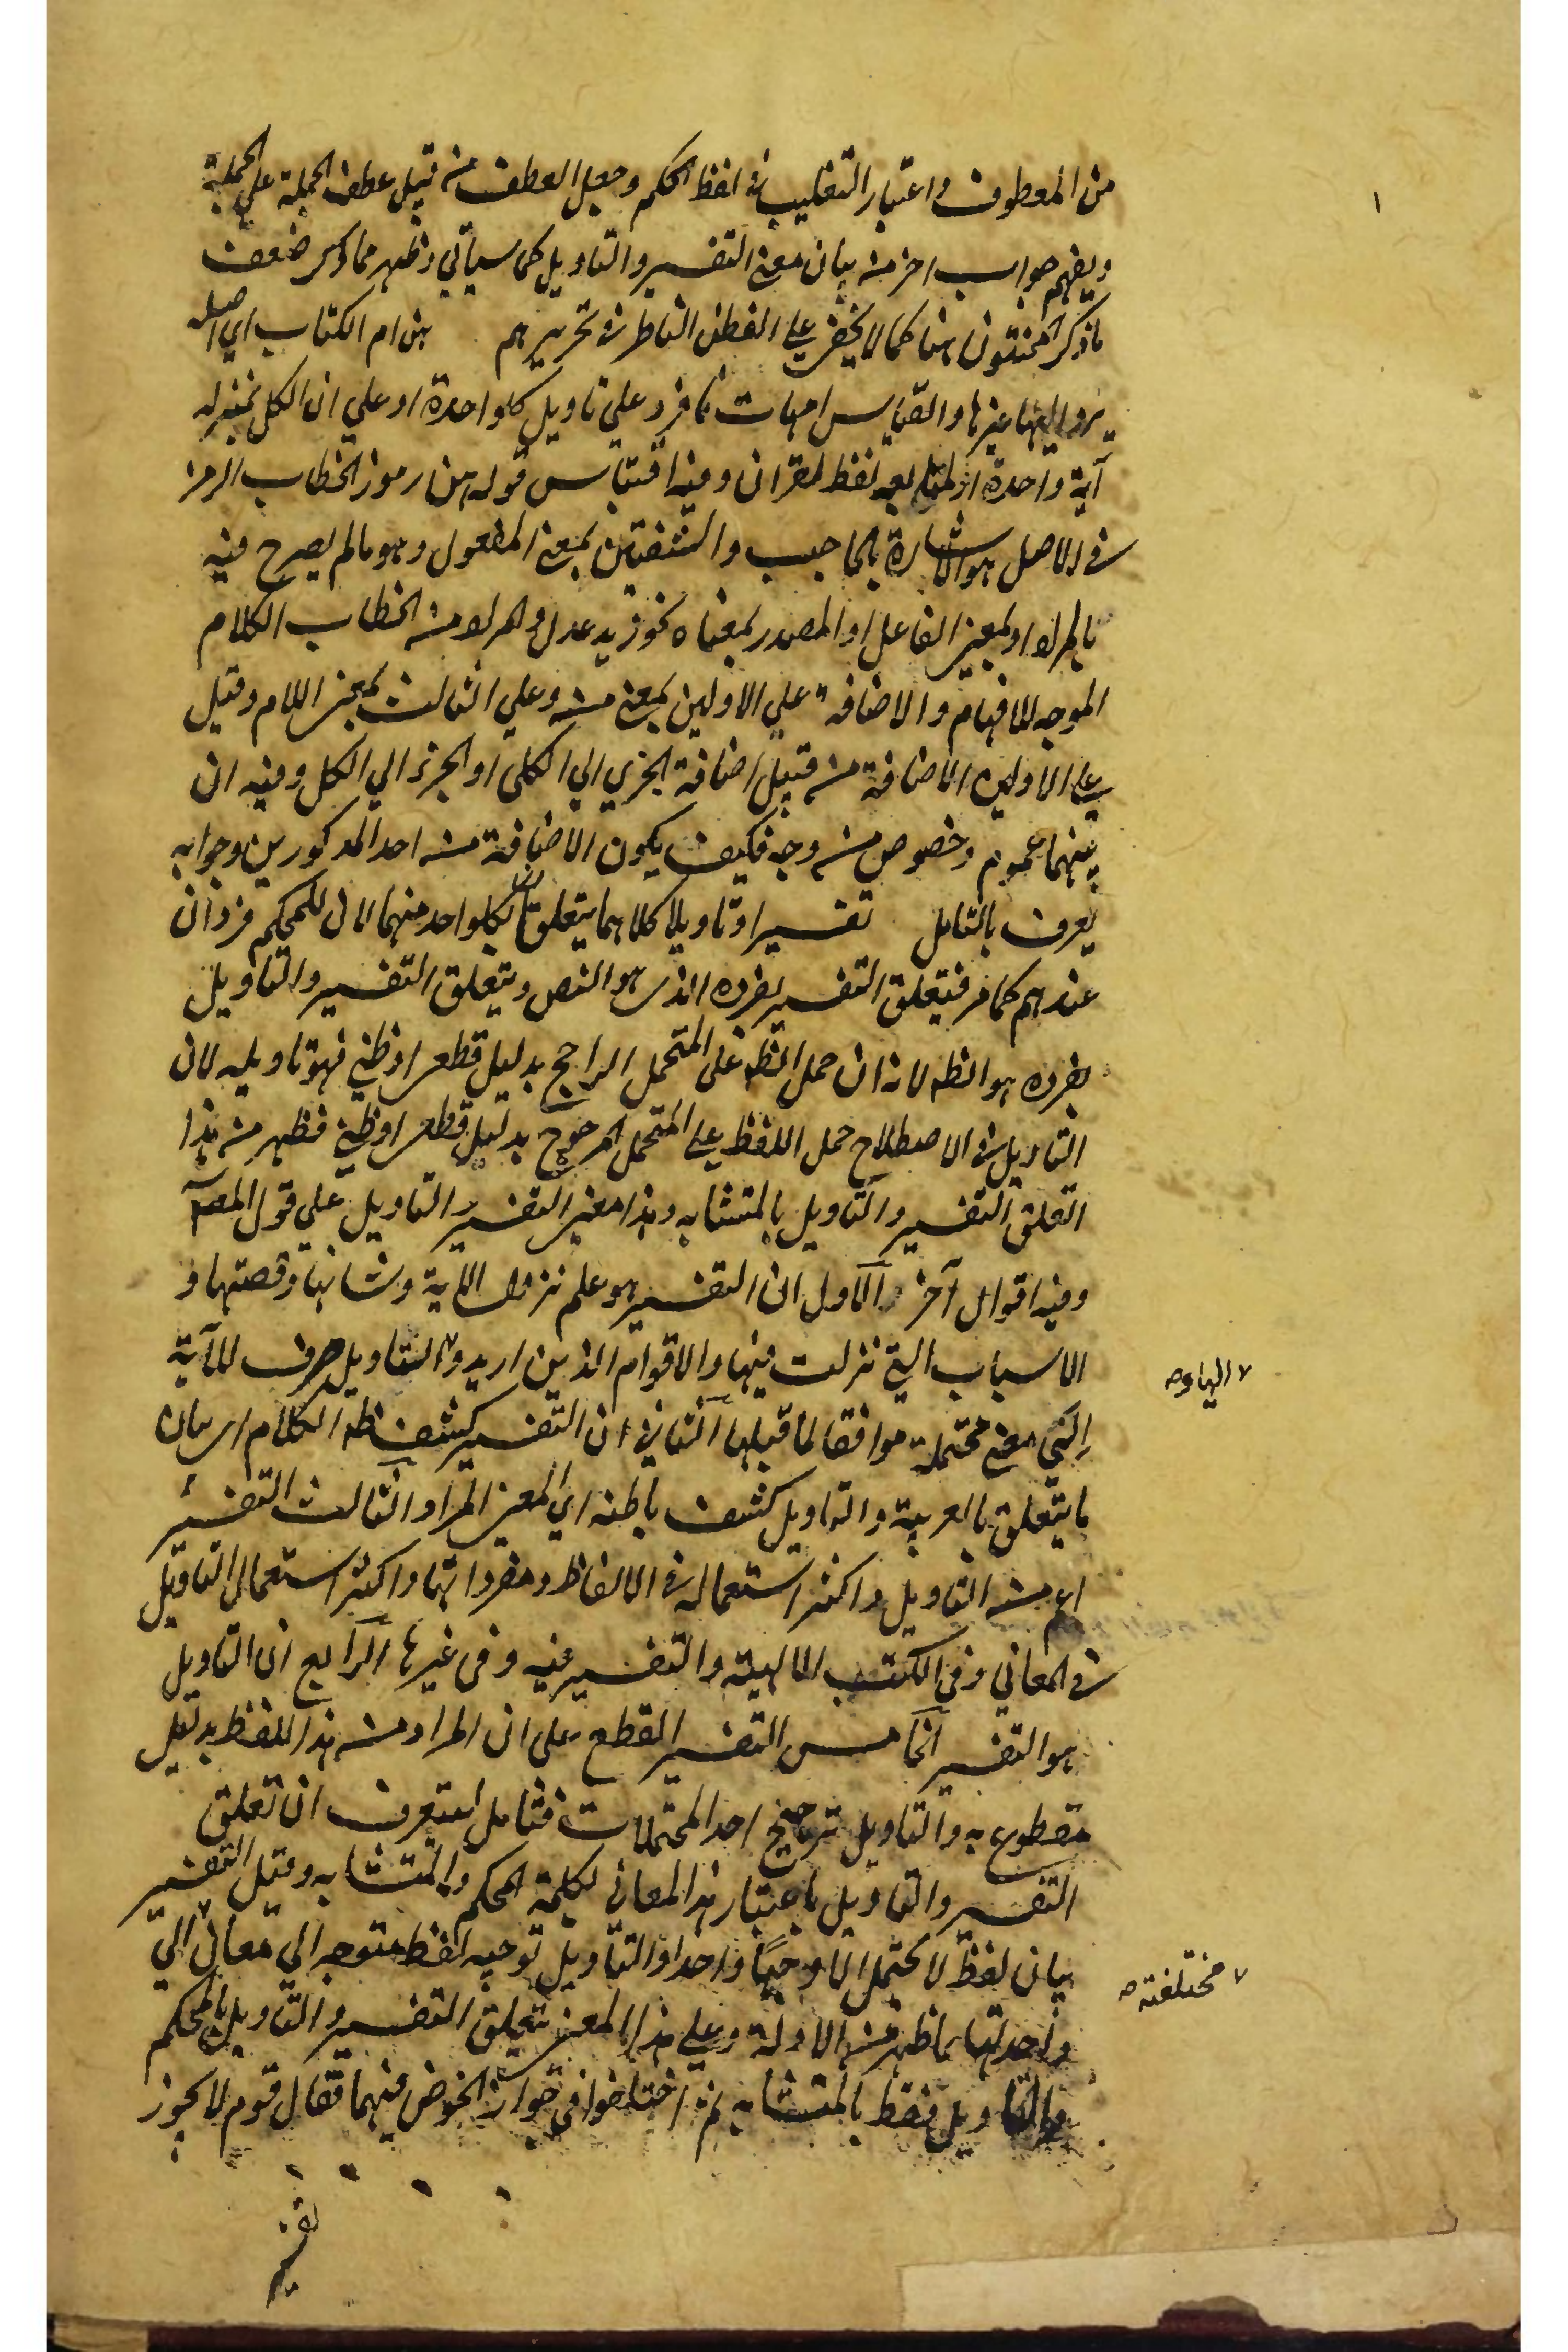 ١
من المعطوف واعتبار التغليب في لفظ الحكم وجعل العطف من قبيل عطف الجملة علي الجملة
ويفهم جواب اخر من بيان معنى التفسير والتاويل كما سيأتي وظهر مما ذكر ضعف
ما ذكر المحشون هنا كما لا يخفى على الفطن الناظر في تحريرهم هن ام الكتاب اي اصله
يرد اليها غيرها والقياس امهات فافرد علي تاويل كلواحدة او علي ان الكل بمنزلة
آية واحدة او لمتابعه لفظ القران وفيه اقتباس قوله من رموز الخطاب الرمز
في الاصل هو الاشارة بالحاجب والشفتين بمعنى المفعول وهو ما لم يصرح فيه
بالمراد او بمعنى الفاعل او المصدر بمعناه نحو زيد عدل والمراد من الخطاب الكلام
الموجه للافهام والاضافة علي الاولين بمعنى من وعلي الثالث بمعنى اللام وقيل
على الاولين الاضافة من قبيل اضافة الجزئي الي الكلي او الجزء الي الكل وفيه ان
بينهما عموم وخصوص من وجه فكيف يكون الاضافة من احد المذكورين وجوابه
يعرف بالتامل تفسيرا وتاويلا كلاهما يتعلقان بكلواحد منهما لان للمحكم فردان
عندهم كما مر فيتعلق التفسير بفرده الذي هو النص ويتعلق التفسير والتاويل
بفرده هو الظه لانه ان حمل الظه على المتحمل الراجح بدليل قطعي او ظني فهو تاويله لان
التاويل في الاصطلاح حمل اللفظ على المتحمل المرجوح بدليل قطعي او ظني فظهر من هذا
التعلق التفسير والتاويل بالمتشابه وهذا معنى التفسير والتاويل علي قول المصه
وفيه اقوال آخر الاول ان التفسير هو علم نزول الاية وشانها وقصتها و
الاسباب التي نزلت فيها والاقوام الذين اريدوا ٧ التاويل صرف للآية
٧ الهاوه
الي معنى محتملة موافقا لما قبلها الثاني ان التفسير كشف ظه الكلام اي بيان
ما يتعلق بالعربية والتاويل كشف باطنه اي المعنى المراد الثالث التفسير
اعم من التاويل واكثر استعماله في الالفاظ ومفرداتها واكثر استعمال التاويل
في المعاني وفي الكتب الالهية والتفسير فيه وفي غيرها الرابع ان التاويل
هو التفسير الخامس التفسير القطع على ان المراد من هذا اللفظ بدليل
مقطوع به والتاويل ترجيح احد المحتملات فتامل لتعرف ان تعلق
التفسير والتاويل باعتبار هذا المعاني لكلمة المحكم والمتشابه وقيل التفسير
بيان لفظ لا يحتمل الا وجها واحدا والتاويل توجيه لفظ متوجه الي معان ٧ الي
٧ مختلفته ص
واحد لها بما ظهر من الادلة وعلي هذا المعنى يتعلق التفسير والتاويل بالمحكم
والتاويل فقط بالمتشابه ثم اختلفوا في جواز الخوض فيهما فقال قوم لا يجوز